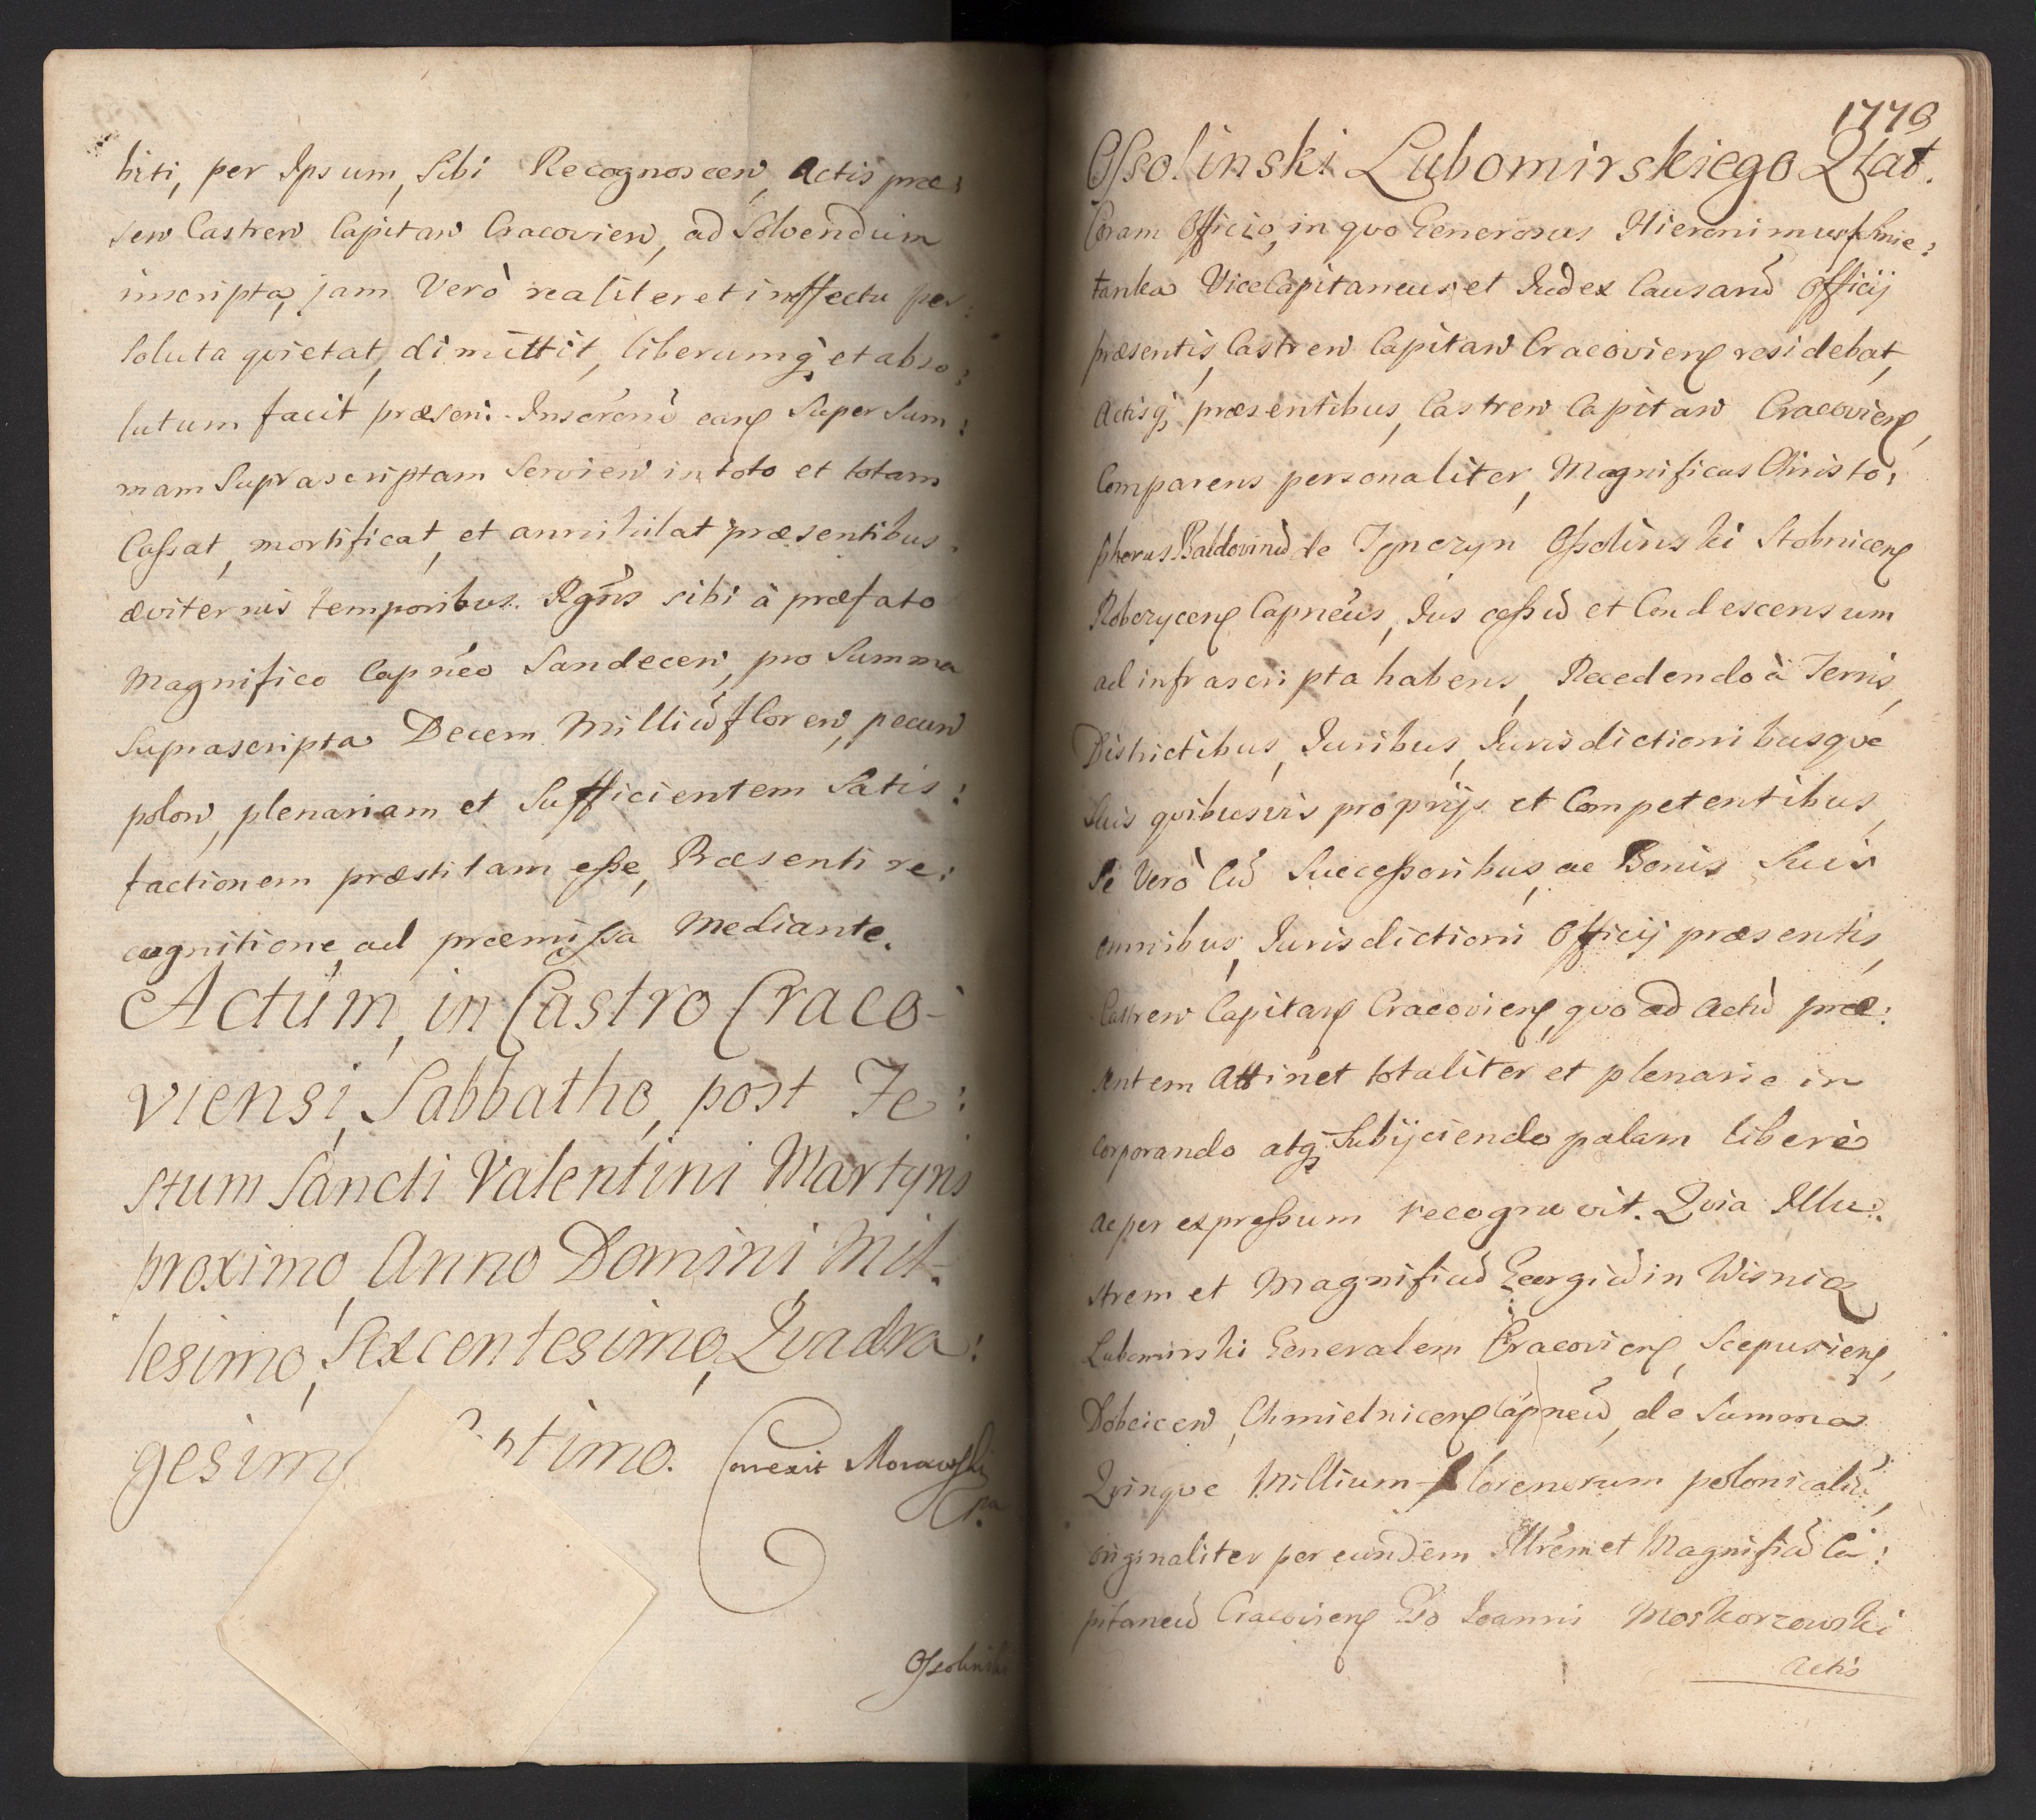 biti, per Ipsum, Sibi Recognoscen, Actis præ:
sen Castren Capitan Cracovien, ad Solvendum
inscripta, jam Verò realiter et in effectu per:
soluta qvietat, dimittit, liberumq, et abso:
lutum facit præsen: Inscrẽm eanq Super Sum:
mam Suprascriptam Servien in toto et totam
Caſsat, mortificat, et annihilat præsentibus
æviternis temporibus. Rgñs sibi à præfato
Magnifico Capnéo Sandecen, pro Summa
Suprascripta Decem Milliũ floren, pecun
polon, plenariam et Sufficientem Satis:
factionem præstitam eſse, Præsenti re:
cognitione, ad præmiſsa Mediante.
Actum, in Castro Craco-
viensi, Sabbatho, post Fe:
stum Sancti Valentini Martyris
proximo, Anno Domini Mil-
lesimo, Sexcentesimo, Qvadra:
gesimo timo. Correxit Morawſki
mp
Oſsolinski
1778
Oſsolinski Lubomirskiego Qtat.
Coram Officio, in qvo Generosus Hieronimus Smie:
tanka ViceCapitaneus et Iudex Causarũ Officij
præsentis, Castren Capitan Cracovienq residebat,
Actisq, præsentibus, Castren Capitan Cracovienq,
Comparens personaliter, Magnificus Christo:
phorus Baldovinũ de Tenczyn Oſsolinski Stobnicenq
Robczycenq Capnéus, Ius ceſsũ et Condescensum
ad infrascripta habens, Recedendo à Terris,
Districtibus, Iuribus, Iurisdictionibusqve
Suis qvibusvis proprijs et Competentibus,
Se Verò Cũ Succeſsoribus, ac Bonis Suis
omnibus, Iurisdictioni Officij præsentis,
Castren Capitanq Cracovienq, qvo ad Actũ præ:
sentem Attinet totaliter et plenarie in
corporando atq, Subijciendo palam liberè
ac per expreſsum recognovit. Qvia Illu:
strem et Magnificũ Georgiũ in Wisnicz
Lubomirski Generalem Cracovienq, Scepusienq,
Dobcicen, Chmielnicenq Capneũ, de Summa
Qvinqve Millium Florenorum polonicaliũ,
originaliter per eundem Illrẽm et Magnificũ Ca:
pitaneũ Cracovienq Gso Ioannis Moskorzowski
Actis